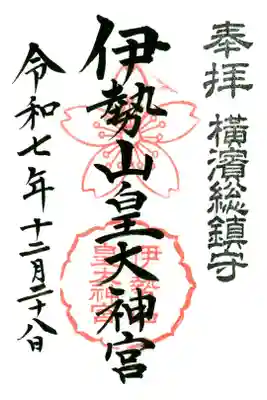 奉拝 横濱総鎮守
伊勢山皇大神宮
令和七年十二月二十八日
伊勢山
皇大神宮